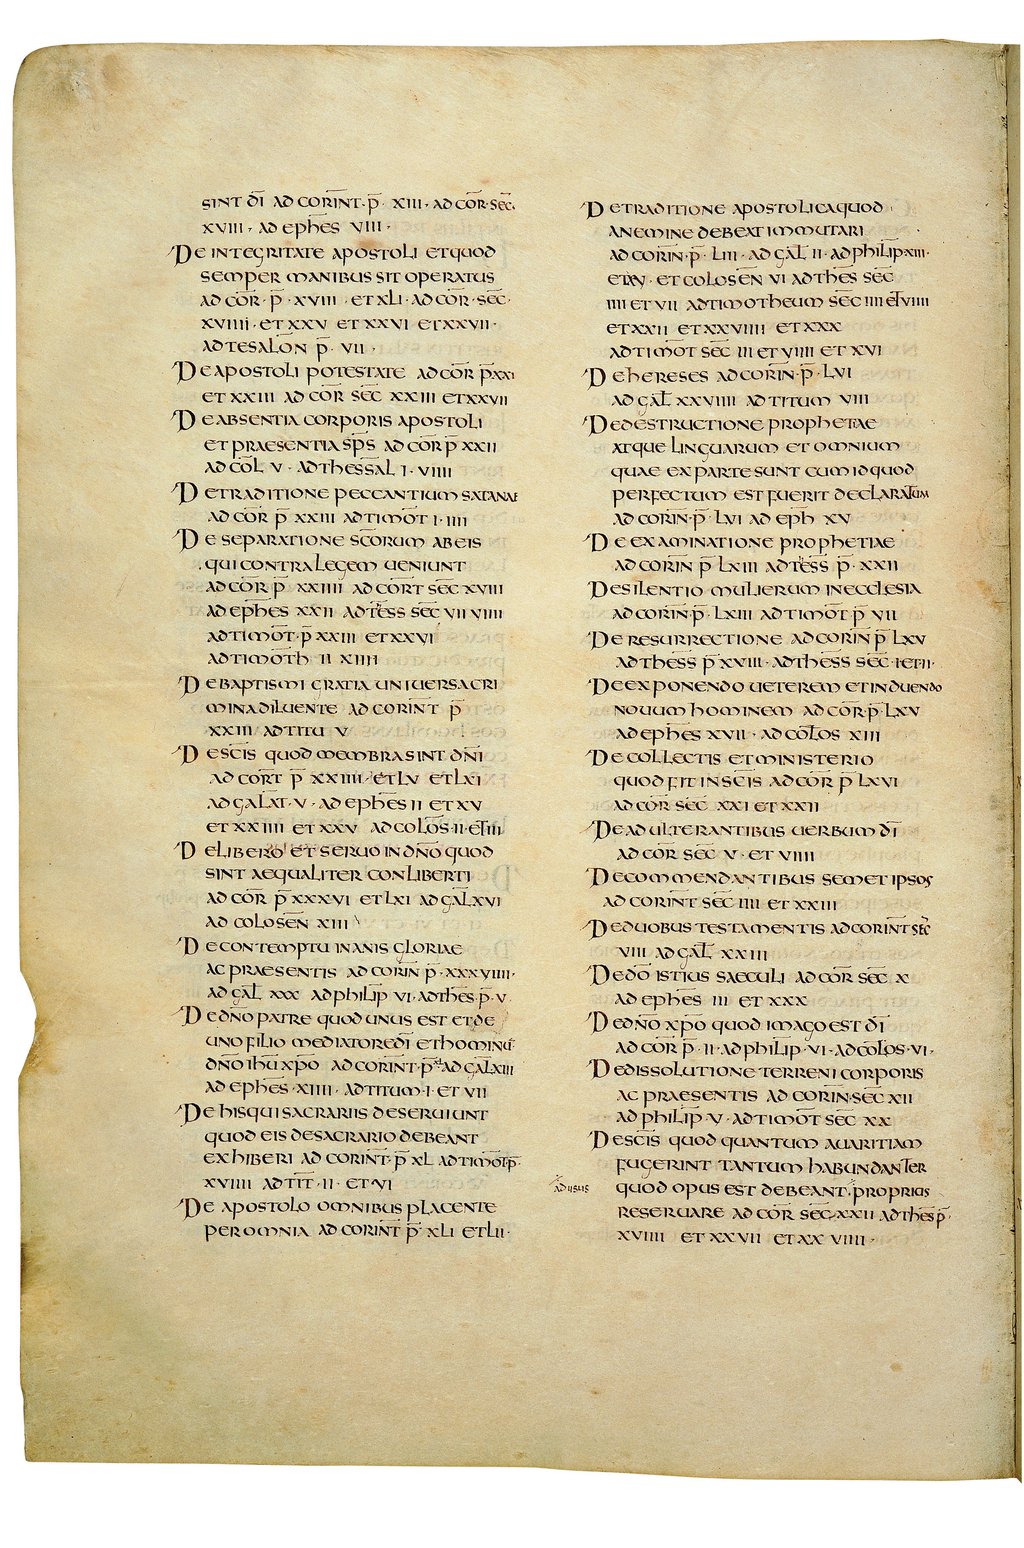 SINT DĪ AD CORĪNT · P̄ · XIII · AD COR̄ · SEC̄ ·
XVIII · AD EPHES̄ VIII ·
DE INTEGRITATE APOSTOLI ET QUOD
SEMPER MANIBUS SIT OPERATUS
AD COR̄ · P̄ · XVIII · ET XLI · AD COR̄ · SEC̄ ·
XVIIII · ET XXV ET XXVI ET XXVII ·
AD TESALŌN P̄ · VII ·
DE APOSTOLI POTESTATE AD COR̄ P̄ XXI
ET XXIII AD COR̄ SEC̄ XXIII ET XXVII
DE ABSENTIA CORPORIS APOSTOLI
ET PRAESENTIA SP̄S AD COR̄ P̄ XXII
AD COL̄ V · AD THESSAL̄ I · VIIII
DE TRADITIONE PECCANTIUM SATANAE
AD COR̄ P̄ XXIII AD TIMŌT I · IIII
DE SEPARATIONE SC̄ORUM AB EIS
QUI CONTRA LEGEM UENIUNT
AD COR̄ P̄ XXIIII AD COR̄T SEC̄ XVIII
AD EPHES̄ XXII AD TĒSS SEC̄ VII VIIII
AD TIMŌT · P̄ XXIII ET XXVI
AD TIMŌTH II XIIII
DE BAPTISMI GRATIA UNIUERSA CRI
MINA DILUENTE AD CORĪNT P̄
XXIII AD TITU V
DE SC̄IS QUOD MEMBRA SINT DN̄I
AD COR̄T P̄ XXIIII · ET LV ET LXI
AD GALĀT · V · AD EPHES̄ II ET XV
ET XXIIII ET XXV AD COLŌS · II · ET III
DE LIBERO ET SERUO IN DN̄O QUOD
SINT AEQUALITER CONLIBERTI
AD COR̄ P̄ XXXVI ET LXI AD GAL̄ XVI
AD COLOSEN̄ XIII
DE CONTEMPTU INANIS GLORIAE
AC PRAESENTIS AD CORIN̄ P̄ · XXXVIIII ·
AD GAL̄ XXX AD PHILIP̄ VI · AD THES̄ · P̄ · V
DE DN̄O PATRE QUOD UNUS EST ET DE
UNO FILIO MEDIATORE DĪ ET HOMINŪ
DN̄O IHŪ XP̄O AD CORĪNT · P̄ AD GAL̄ XIII
AD EPHES̄ · XIIII · AD TITUM · I · ET VII
DE HIS QUI SACRARIIS DESERUIUNT
QUOD EIS DE SACRARIO DEBEANT
EXHIBERI AD CORĪNT · P̄ XL AD TIMŌT P̄ ·
XVIIII AD TIT̄ · II · ET VI
DE APOSTOLO OMNIBUS PLACENTE
PER OMNIA AD CORĪNT P̄ XLI ET LII ·
DE TRADITIONE APOSTOLICA QUOD
A NEMINE DEBEAT IMMUTARI
AD CORIN̄ · P̄ · LIII · AD GAL̄ II · AD PHILIP̄ XIII ·
ET COLOSEN̄ VI AD THES̄ SEC̄
IIII ET VII AD TIMOTHEUM SEC̄ IIII ET VIIII
ET XXII ET XXVIIII ET XXX
AD TIMŌT SEC̄ III ET VIIII ET XVI
DE HERESES AD CORIN̄ · P̄ · LVI
AD GAL̄ XXVIIII AD TITUM VIII
DE DESTRUCTIONE PROPHETIAE
ATQUE LINGUARUM ET OMNIUM
QUAE EX PARTE SUNT CUM ID QUOD
PERFECTUM EST FUERIT DECLARATUM
AD CORIN̄ · P̄ · LVI AD EPH̄ XV
DE EXAMINATIONE PROPHETIAE
AD CORIN̄ P̄ LXIII AD TĒSS P̄ · XXII
DE SILENTIO MULIERUM IN ECCLESIA
AD CORIN̄ · P̄ · LXIII AD TIMŌT P̄ VII
DE RESURRECTIONE AD CORIN̄ P̄ LXV
AD THES̄S P̄ XVIII · AD THES̄S SEC̄ · I ET II ·
DE EXPONENDO UETEREM ET INDUENDO
NOUUM HOMINEM AD COR̄ · P̄ · LXV
AD EPHES̄ XVII · AD COL̄OS XIII
DE COLLECTIS ET MINISTERIO
QUOD FIT IN SC̄IS AD COR̄ P̄ LXVI
AD COR̄ SEC̄ XXI ET XXII
DE ADULTERANTIBUS UERBUM DĪ
AD COR̄ SEC̄ V · ET VIIII
DE COMMENDANTIBUS SEMET IPSOS
AD CORĪNT SEC̄ IIII ET XXIII
DE DUOBUS TESTAMENTIS AD CORĪNT SEC̄
VIII AD GAL̄ XXIII
DE DŌ ISTIUS SAECULI AD COR̄ SEC̄ X
AD EPHES̄ III ET XXX
DE DN̄O XP̄O QUOD IMAGO EST DĪ
AD COR̄ P̄ · II · AD PHILIP̄ · VI · AD COL̄OS · VI ·
DE DISSOLUTIONE TERRENI CORPORIS
AC PRAESENTIS AD CORIN̄ · SEC̄ XII
AD PHILIP̄ · V · AD TIMŌT SEC̄ XX
DE SC̄IS QUOD QUANTUM AUARITIAM
FUGERINT TANTUM HABUNDANTER
AD USUS QUOD OPUS EST DEBEANT · PROPRIOS
RESERUARE AD COR̄ SEC̄ · XXII AD THES̄ P̄ ·
XVIIII ET XXVII ET XXVIIII ·